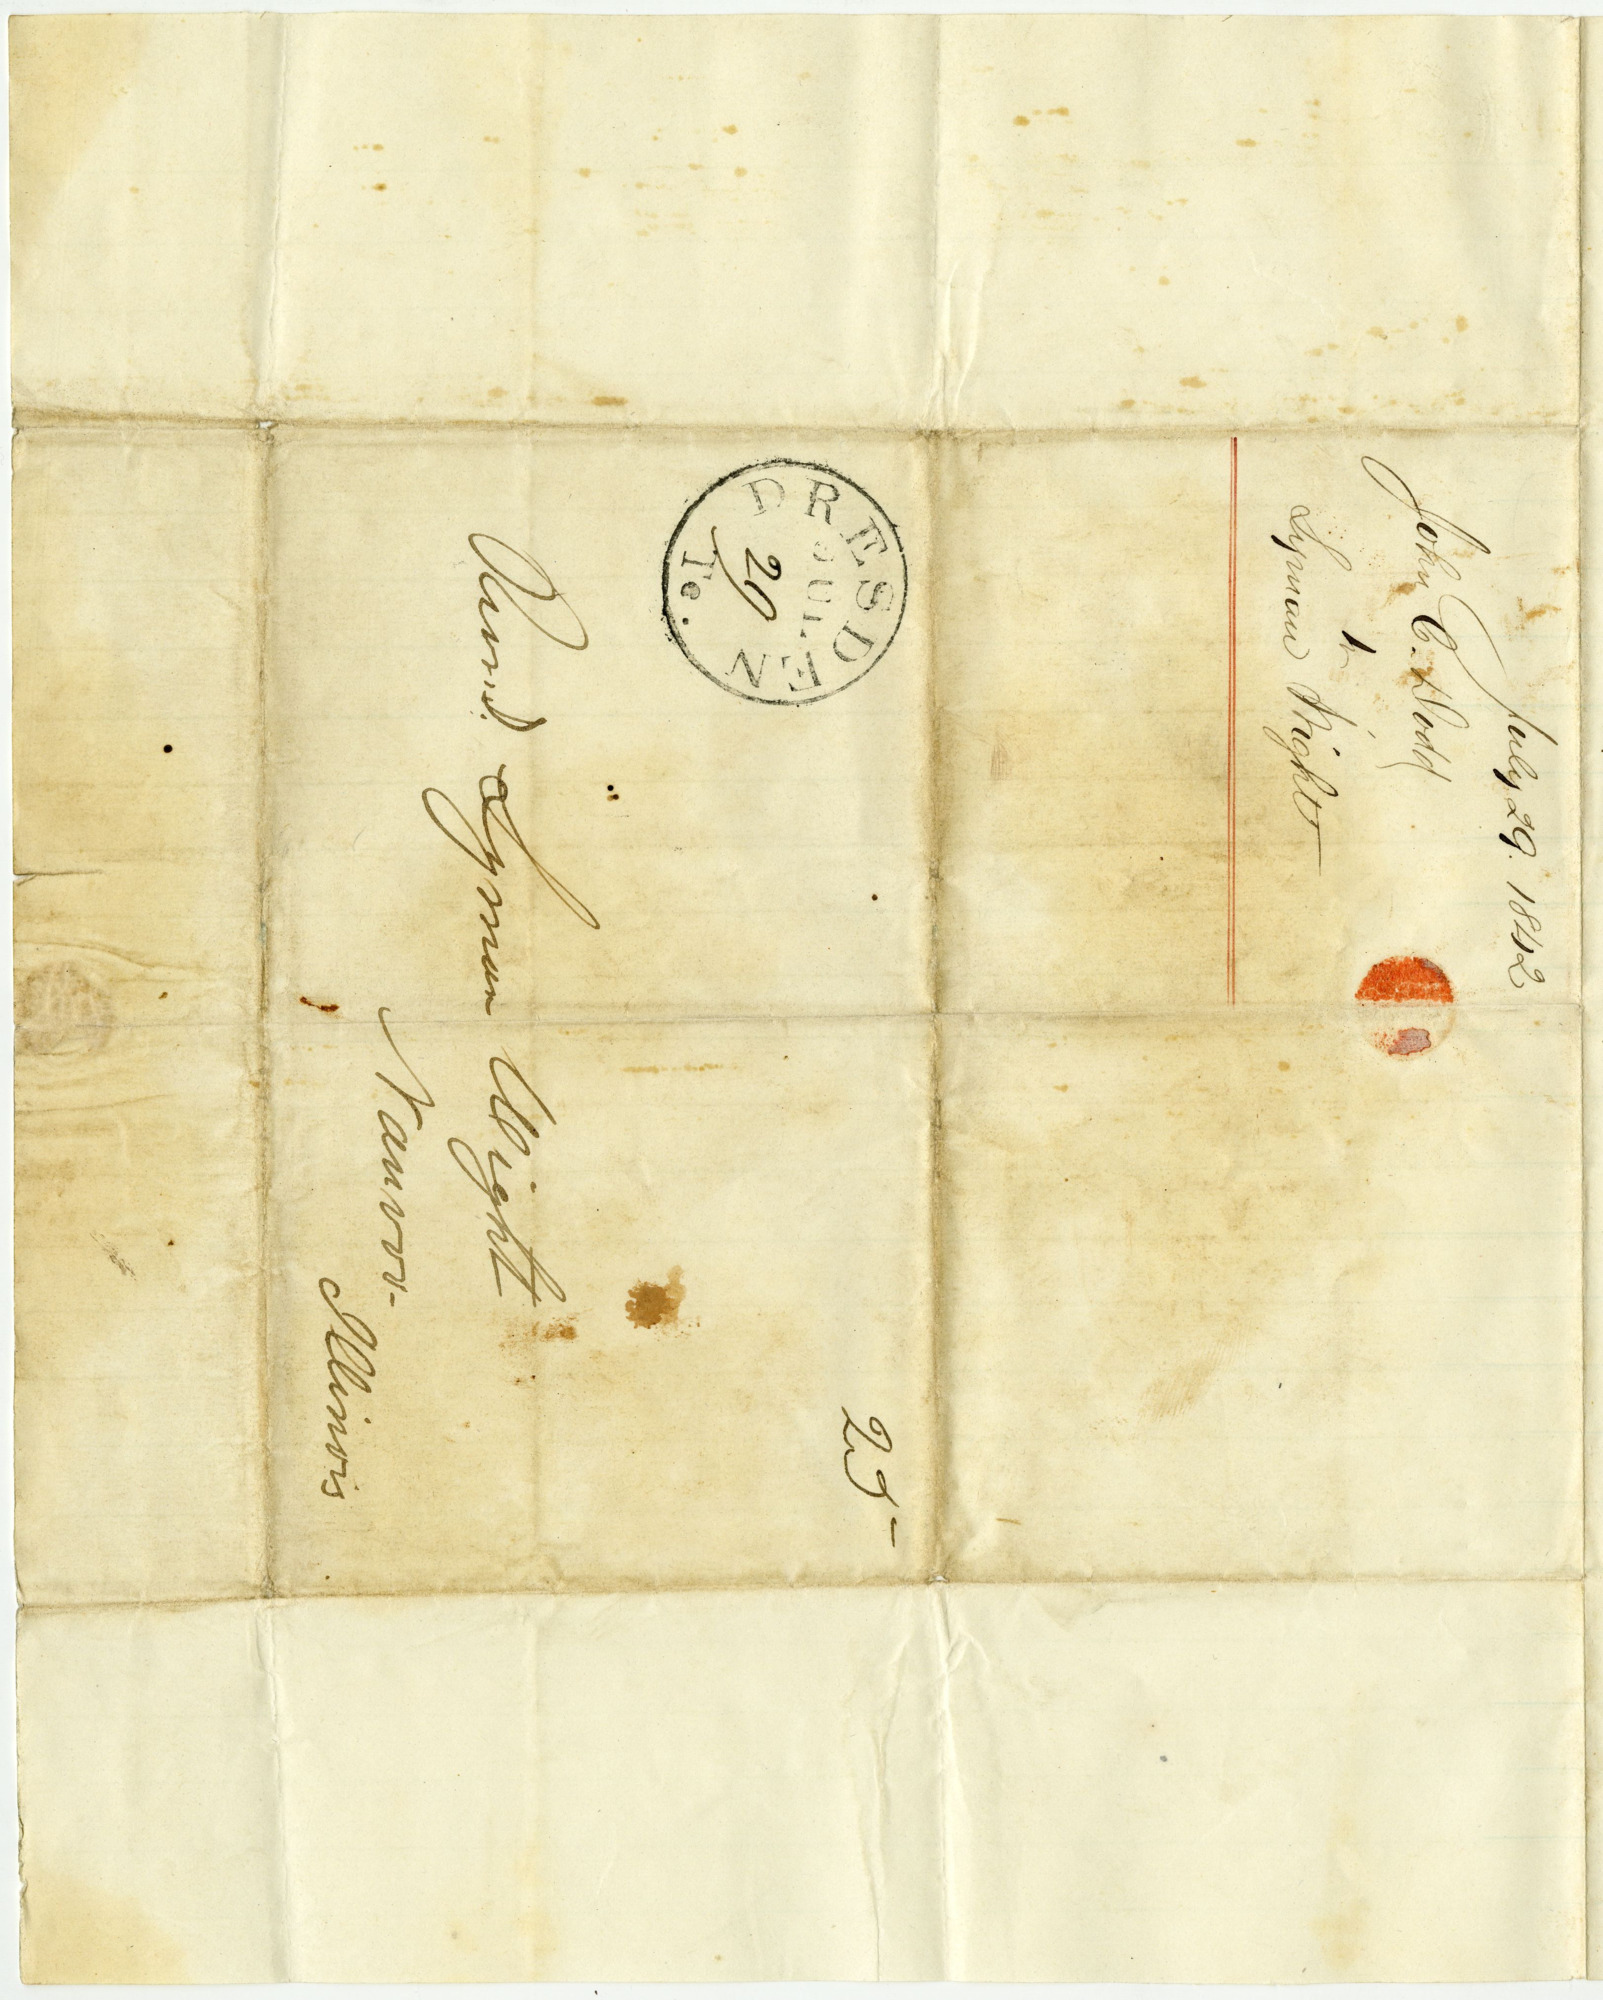 July 29. 1842
John C. Dodd
to
Lyman Wight
25
DRESDEN
JUL
29
Te.
Revnd. Lyman Wight
Nauvoo-
Illinois